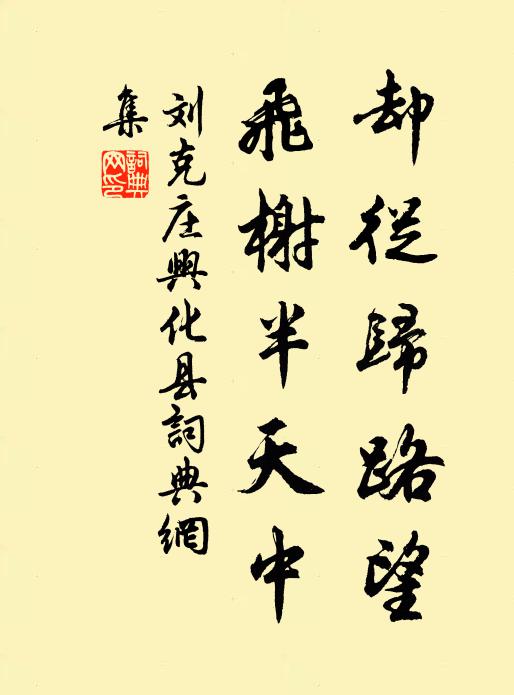 却從歸路望
飛榭半天中
刘克庄興化县詞典網
集
詞典
网印